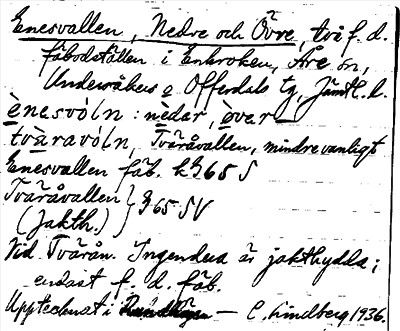 Enesvallen, Nedre och Övre, två f. d.
fäbodställen i Enkroken, Åre sn,
Undersåkers o Offerdals tg, Jämtl. l.
ènesvóln : nèdar, òvar
tvǟravóln, Tväråvallen, mindre vanligt
Enesvallen fäb. k 365 S
Tväråvallen
(Jakth.) } 365 SV
Vid Tvärån. Ingendera är jakthydda;
endast f. d. fäb.
Upptecknat i — C. Lindberg 1936.